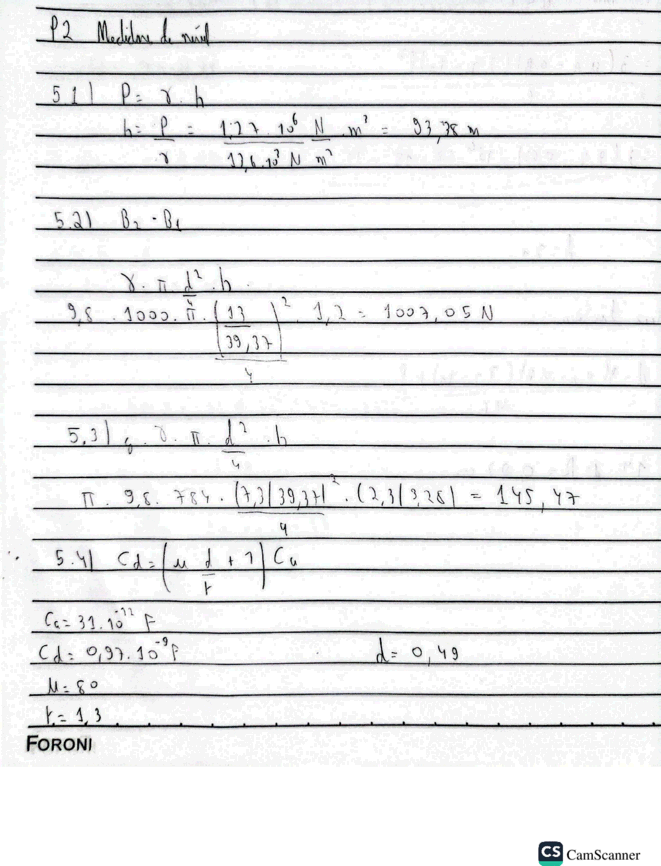 P2 Medidore de nível
5.1) P = γ . h
h = P/γ = 1,27 . 10⁶ N/13,6 . 10³ N . m³/m² = 93,38 m
5.2) B₂ - B₁
γ . π . d²/4 . h
9,8 . 1000 . π . (13/39,37)²/4 . 1,2 = 1007,05 N
5,3) g . γ . π . d²/4 . h
π . 9,8 . 784 . (7,3/39,37)²/4 . (2,3/3,28) = 145,47
5.4) Cd = (μ d/r + 1) Ca
Ca = 31 . 10⁻¹² F
Cd = 0,97 . 10⁻⁹ F d = 0,49
μ = 80
r = 1,3
FORONI
CS CamScanner